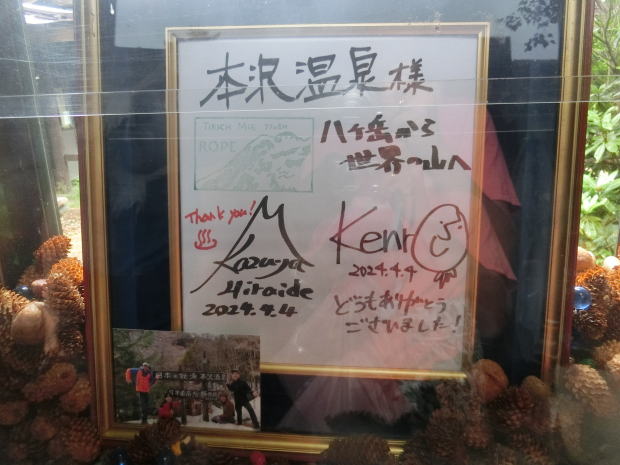 本沢温泉様
TIRICH MIR 7708M
ROPE
八ヶ岳から
世界の山へ
Thank you!
Kazuya
Hiraide
2024.4.4
Kenro
2024.4.4
どうもありがとう
ございました!